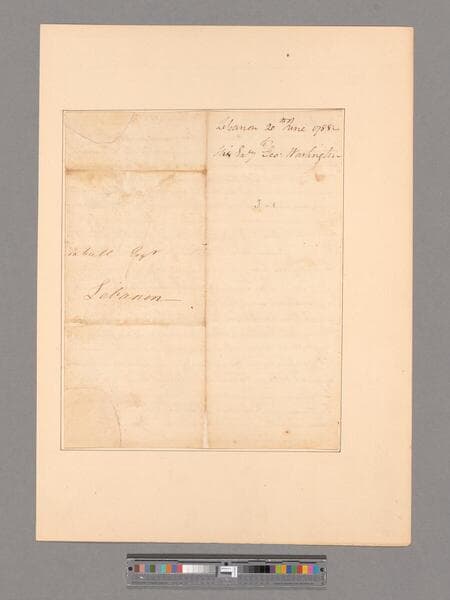 Lebanon 20th June 1788
His Exy Geo: Washington
mbull Esqr
Lebanon